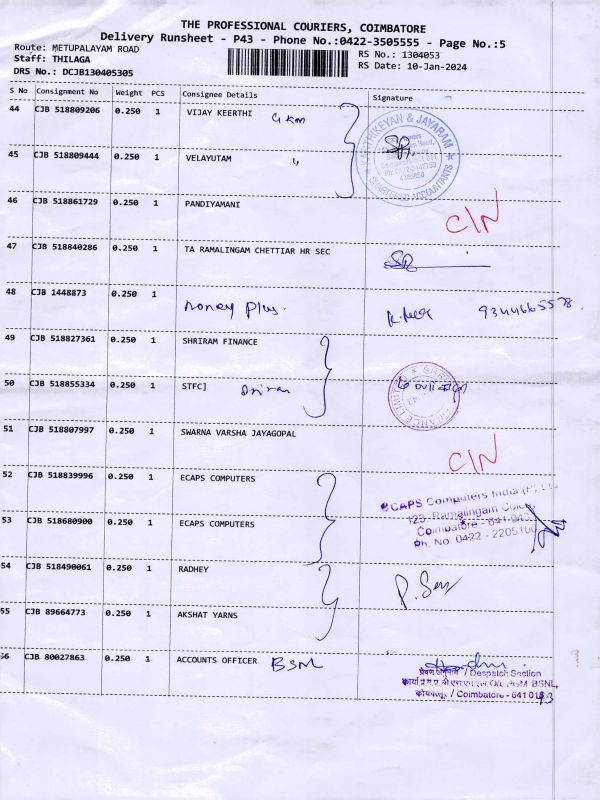 THE PROFESSIONAL COURIERS, COIMBATORE
Delivery Runsheet - P43 - Phone No.:0422-3505555 - Page No.:5
Route: METUPALAYAM ROAD
Staff: THILAGA
DRS No.: DCJB130405305
RS No.: 1304053
RS Date: 10-Jan-2024
S No Consignment No Weight PCS Consignee Details Signature
44 CJB 518809206 0.250 1 VIJAY KEERTHI
KARTHIKEYAN & JAYARAM
CHARTERED ACCOUNTANTS
45 CJB 518809444 0.250 1 VELAYUTAM
46 CJB 518861729 0.250 1 PANDIYAMANI C/N
47 CJB 518840286 0.250 1 TA RAMALINGAM CHETTIAR HR SEC
48 CJB 1448873 0.250 1 money plus. 9344665578
49 CJB 518827361 0.250 1 SHRIRAM FINANCE
50 CJB 518855334 0.250 1 STFC]
51 CJB 518807997 0.250 1 SWARNA VARSHA JAYAGOPAL C/N
52 CJB 518839996 0.250 1 ECAPS COMPUTERS
ECAPS Computers India (P) Ltd
123, Ramalingam Colony
Coimbatore - 641 043
Ph. No 0422 - 2205100
53 CJB 518680900 0.250 1 ECAPS COMPUTERS
54 CJB 518490061 0.250 1 RADHEY
55 CJB 89664773 0.250 1 AKSHAT YARNS
56 CJB 80027863 0.250 1 ACCOUNTS OFFICER BSNL
प्रेषण अनुभाग / Despatch Section
BSNL,
कोयम्बत्तूर / Coimbatore - 641 043